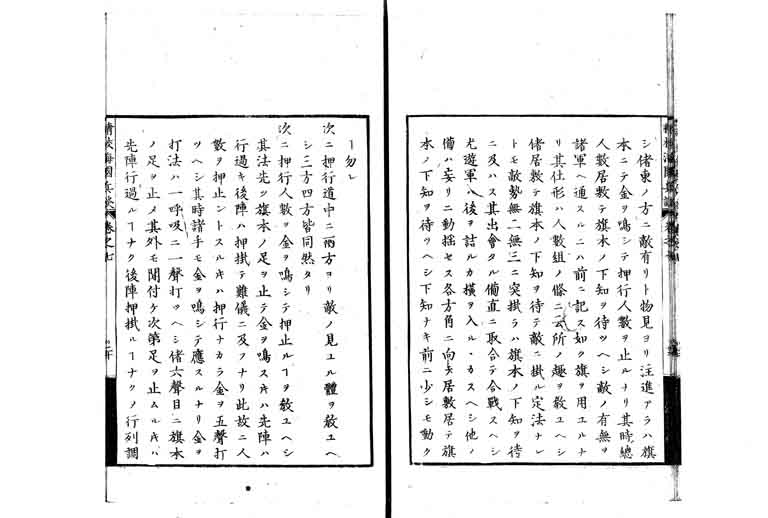 シ偖東ノ方ニ敵有リト物見ヨリ注進アラハ旗
本ニテ金ヲ鳴シテ押行人数ヲ止ルナリ其時總
人数居敷テ旗本ノ下知ヲ待ツヘシ敵ノ有無ヲ
諸軍ヘ通スルニハ前ニ記ス如ク旗ヲ用ユルナ
リ其仕形ハ人数組ノ條ニ云所ノ趣ヲ敎ユヘシ
偖居敷テ旗本ノ下知ヲ待テ敵ニ掛ル定法ナレ
トモ敵勢無二無三ニ突掛ラハ旗本ノ下知ヲ待
ニ及ハス其出會タル備直ニ取合テ合戰スヘシ
尤遊軍ハ後ヲ詰ルカ横ヲ入ル・カスヘシ他ノ
備ハ妄リニ動揺セス各方角ニ向テ居敷居テ旗
本ノ下知ヲ待ツヘシ下知ナキ前ニ少シモ動ク
ヿ勿レ
次ニ押行道中ニ両方ヨリ敵ノ見ユル體ヲ敎ユヘ
シ三方四方皆同然タリ
次ニ押行人数ヲ金ヲ鳴シテ押止ルヿヲ敎ユヘシ
其法先ツ旗本ノ足ヲ止テ金ヲ鳴スキハ先陣ハ
行過キ後陣ハ押掛テ難儀ニ及フナリ此故ニ人
数ヲ押止ントスルキハ押行ナカラ金ヲ五聲打
ツヘシ其時諸手モ金ヲ鳴シテ應スルナリ金ヲ
打法ハ一呼吸ニ一聲打ツヘシ偖六聲目ニ旗本
ノ足ヲ止メ其外モ聞付ケ次第足ヲ止ムルキハ
先陣行過ルヿナク後陣押掛ルヿナクノ行列調
精校海國兵談 卷之七